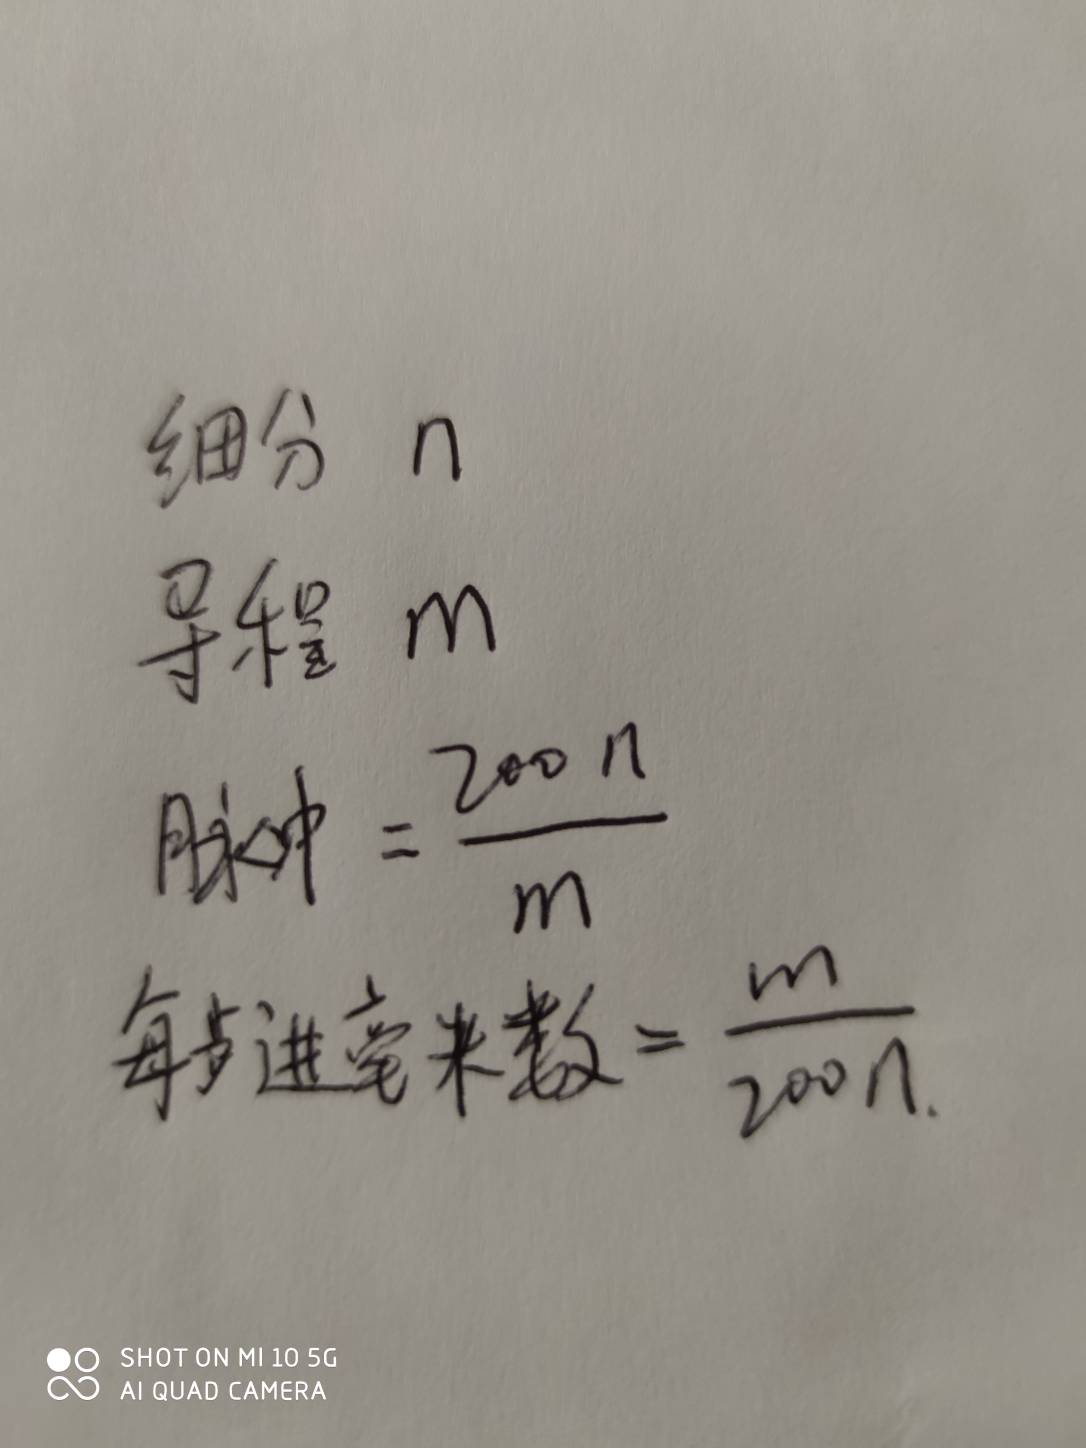 细分 n
导程 m
脉冲 = 200n/m
每步进毫米数 = m/200n.
SHOT ON MI 10 5G
AI QUAD CAMERA